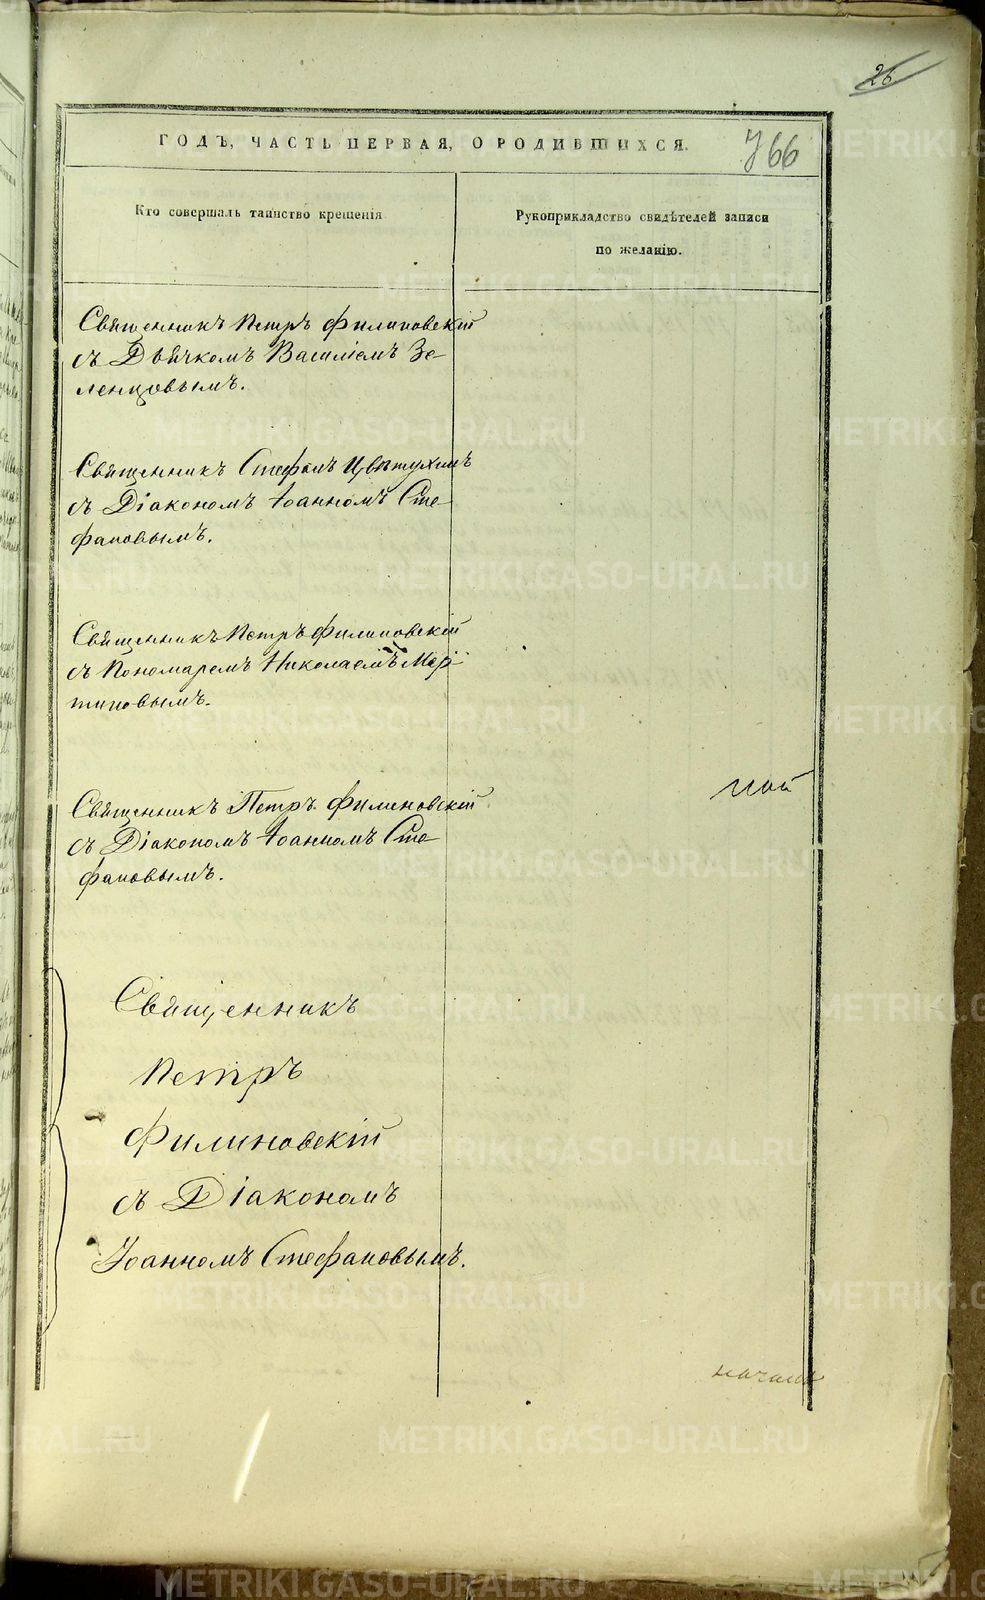 26
ГОДЪ, ЧАСТЬ ПЕРВАЯ, О РОДИВШИХСЯ.
766
Кто совершалъ таинство крещенія
Рукоприкладство свидѣтелей записи
по желанію.
Священникъ Петръ Филиновскій
съ Дьячкомъ Василіемъ Зе
ленцовымъ.
Священникъ Стефанъ Цвѣтухинъ
съ Діакономъ Іоанномъ Сте
фановымъ.
Священникъ Петръ Филиновскій
съ Пономаремъ Николаемъ Мар
тиновымъ.
Священникъ Петръ Филиновскій
съ Діакономъ Іоанномъ Сте
фановымъ.
Священникъ
Петръ
Филиновскій
съ Діакономъ
Іоанномъ Стефановымъ.
METRIKI.GASO-URAL.RU